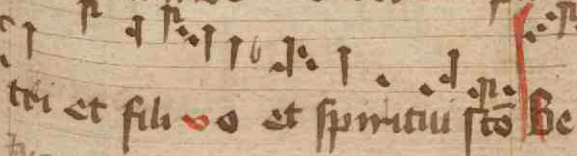 tri et filio et spiritui scō Be